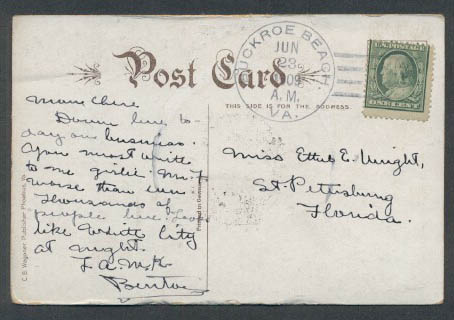 BUCKROE BEACH
JUN
23
1909
A.M.
VA.
Post Card
THIS SIDE IS FOR THE ADDRESS.
Down here to-
day on business.
You must write
to me girlie.
worse than ever
thousands of
people here. Looks
like White City
at night.
Miss Ethel E. Wright,
St. Petersburg
Florida.
C.B. Wagoner, Publisher, Phoebus, Va.
Printed in Germany
ONE CENT